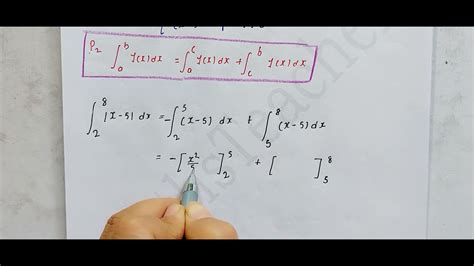 P₂ ∫ₐᵇ f(x)dx = ∫ₐᶜ f(x)dx + ∫꜀ᵇ f(x)dx
∫₂⁸ |x-5| dx = -∫₂⁵ (x-5) dx + ∫₅⁸ (x-5)dx
= -[x²/5 ]₂⁵ + [ ]₅⁸